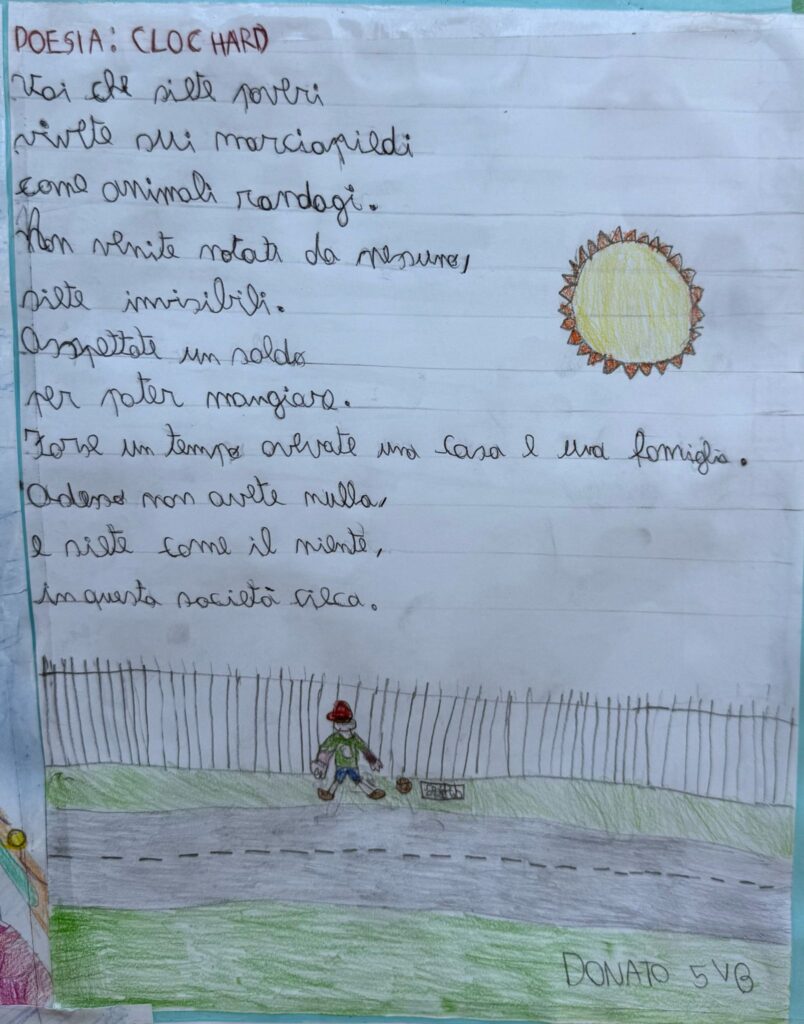 POESIA: CLOCHARD
Voi che siete poveri
vivete sui marciapiedi
come animali randagi.
Non venite notati da nessuno,
siete invisibili.
Aspettate un soldo
per poter mangiare.
Forse un tempo avevate una casa e una famiglia.
Adesso non avete nulla,
e siete come il niente,
in questa società cieca.
DONATO 5VB